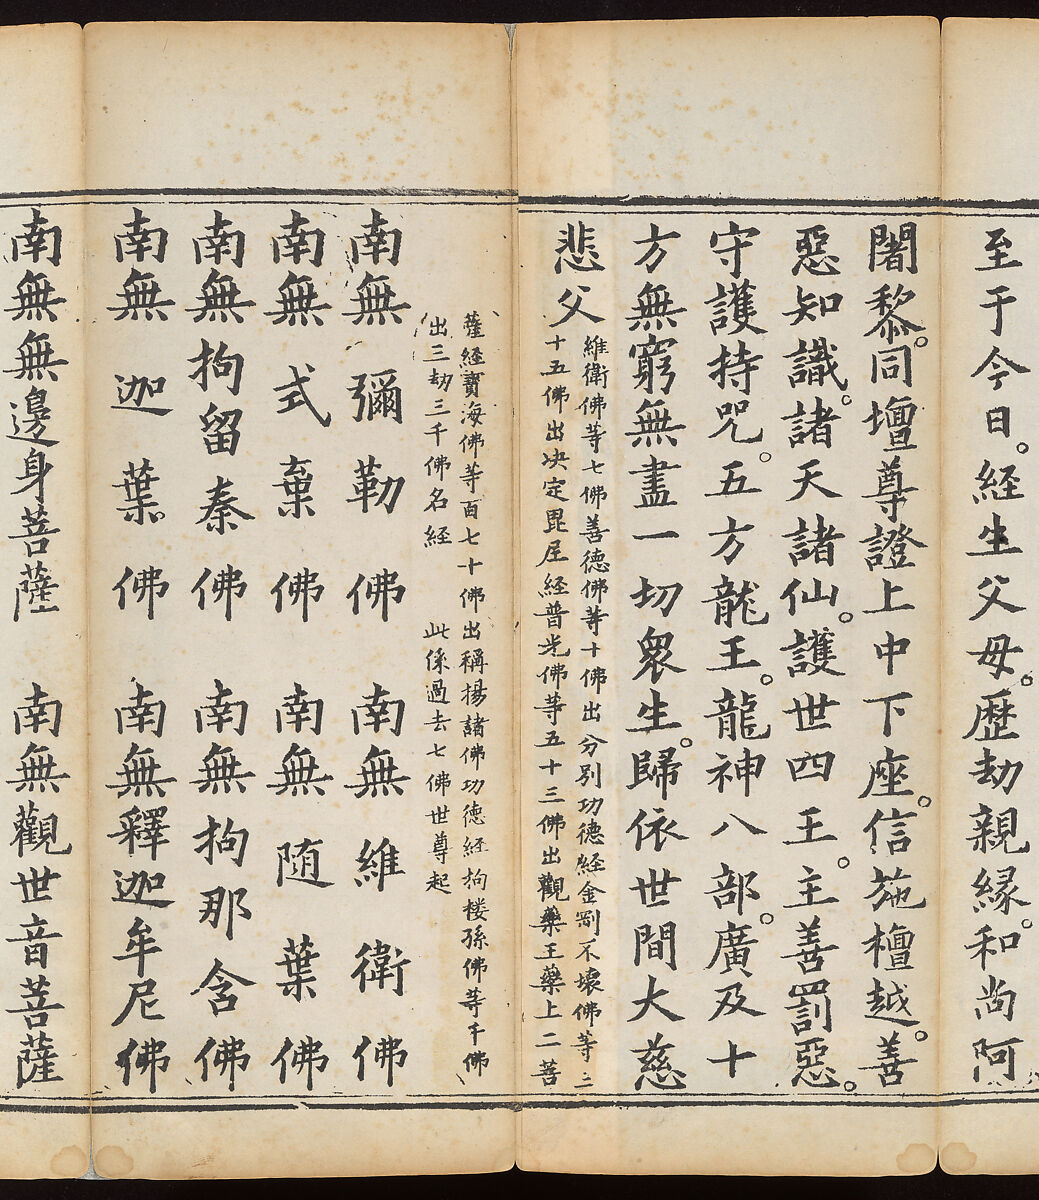 至于今日。経生父母。歴劫親縁。和尚阿
闍黎。同壇尊證上中下座。信施檀越。善
惡知識。諸天諸仙。護世四王。主善罰惡。
守護持咒。五方龍王。龍神八部。廣及十
方無窮無盡一切衆生。歸依世間大慈
悲父
維衛佛等七佛善德佛等十佛出分別功德経金剛不壊佛等二
十五佛出决定毘尼経普光佛等五十三佛出觀藥王藥上二菩
薩経寳海佛等百七十佛出稱揚諸佛功德経拘楼孫佛等千佛
出三劫三千佛名経 此係過去七佛世尊起
南無彌勒佛 南無維衛佛
南無式棄佛 南無随葉佛
南無拘留秦佛 南無拘那含佛
南無迦葉佛 南無釋迦牟尼佛
南無無邊身菩薩 南無觀世音菩薩